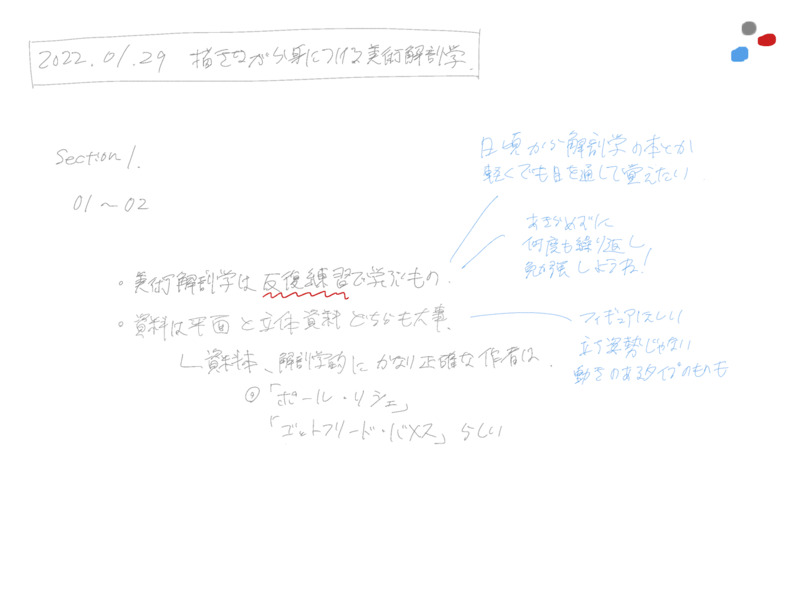 2022.01.29 描きながら身につける美術解剖学.
Section 1.
01〜02
・美術解剖学は反復練習で学ぶもの.
・資料は平面と立体資料どちらも大事.
資料本、解剖学的にかなり正確な作者は.
◎「ポール・リシェ」
「ゴットフリード・バメス」らしい
日頃から解剖学の本とか
軽くでも目を通して覚えたい.
あきらめずに
何度も繰り返し,
勉強しようね!
フィギュアほしい
立ち姿勢じゃない
動きのあるタイプのものも